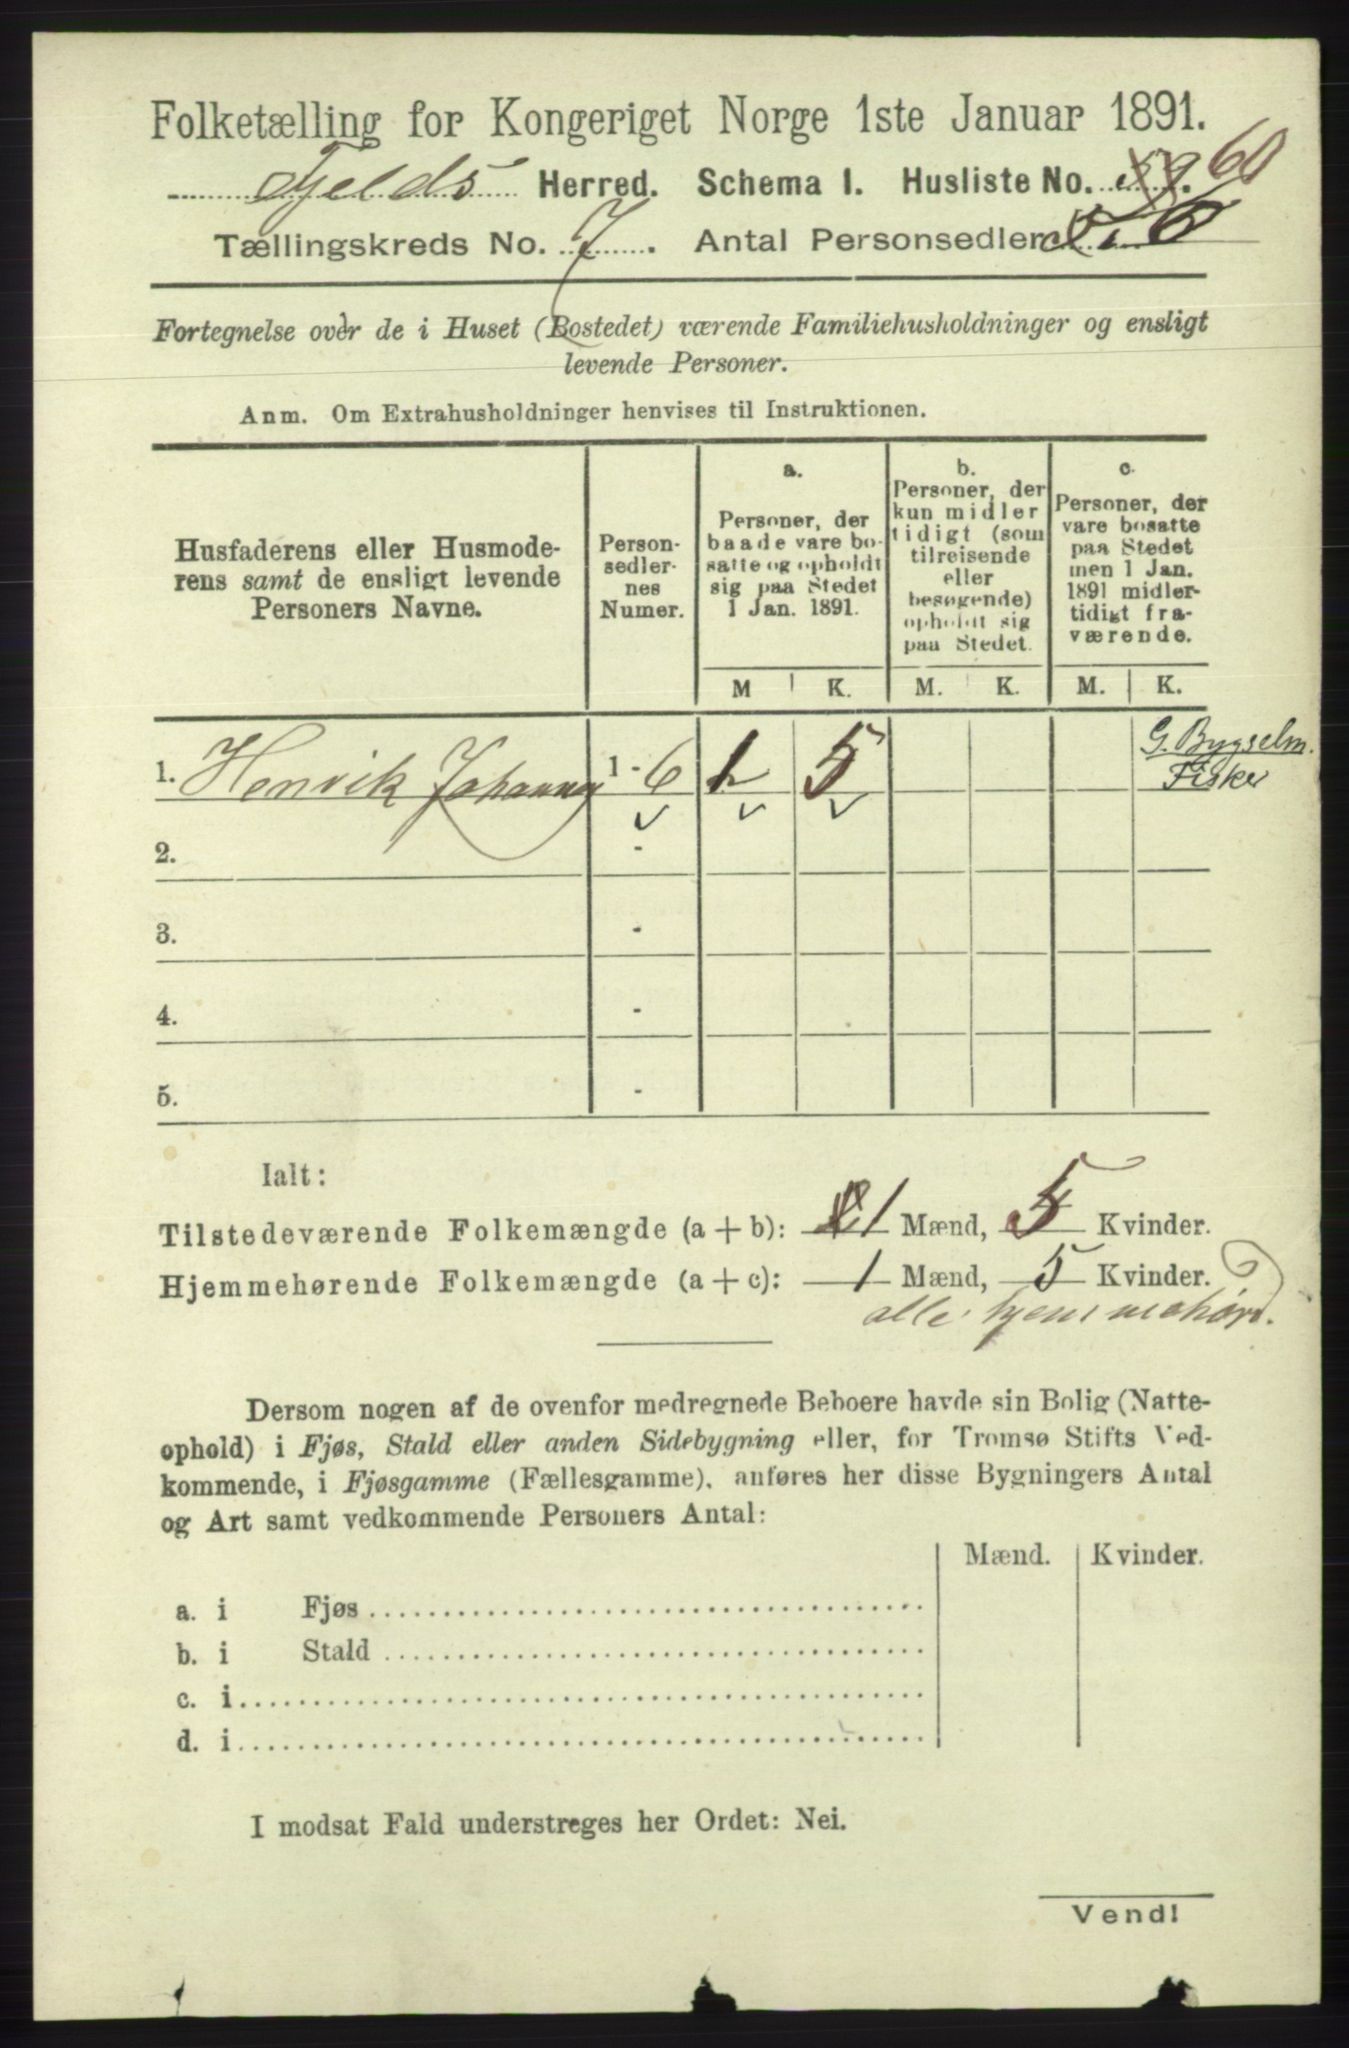 Folketælling for Kongeriget Norge 1ste Januar 1891.
Fjelds Herred. Schema I. Husliste No. 59. 60
Tællingskreds No. 7. Antal Personsedler 6
Fortegnelse over de i Huset (Bostedet) værende Familiehusholdninger og ensligt
levende Personer.
Anm. Om Extrahusholdninger henvises til Instruktionen.
Husfaderens eller Husmode-
rens samt de ensligt levende
Personers Navne.
Person-
sedler-
nes
Numer.
a.
Personer, der
baade vare bo-
satte og opholdt
sig paa Stedet
1 Jan. 1891.
b.
Personer, der
kun midler
tidigt (som
tilreisende
eller
besøgende)
opholdt sig
paa Stedet.
c.
Personer, der
vare bosatte
paa Stedet
men 1 Jan.
1891 midler-
tidigt fra-
værende.
M K. M. K. M. K.
1. Henrik 1 - 6 1 5 G. Bygselm.
Fisker
2. -
3. -
4. -
5. -
Ialt:
Tilstedeværende Folkemængde (a + b): 1 Mænd, 5 Kvinder.
Hjemmehørende Folkemængde (a + c): 1 Mænd, 5 Kvinder.
alle hjemmehørd.
Dersom nogen af de ovenfor medregnede Beboere havde sin Bolig (Natte-
ophold) i Fjøs, Stald eller anden Sidebygning eller, for Tromsø Stifts Ved-
kommende, i Fjøsgamme (Fællesgamme), anføres her disse Bygningers Antal
og Art samt vedkommende Personers Antal:
Mænd. Kvinder.
a. i Fjøs
b. i Stald
c. i
d. i
I modsat Fald understreges her Ordet: Nei.
Vend!